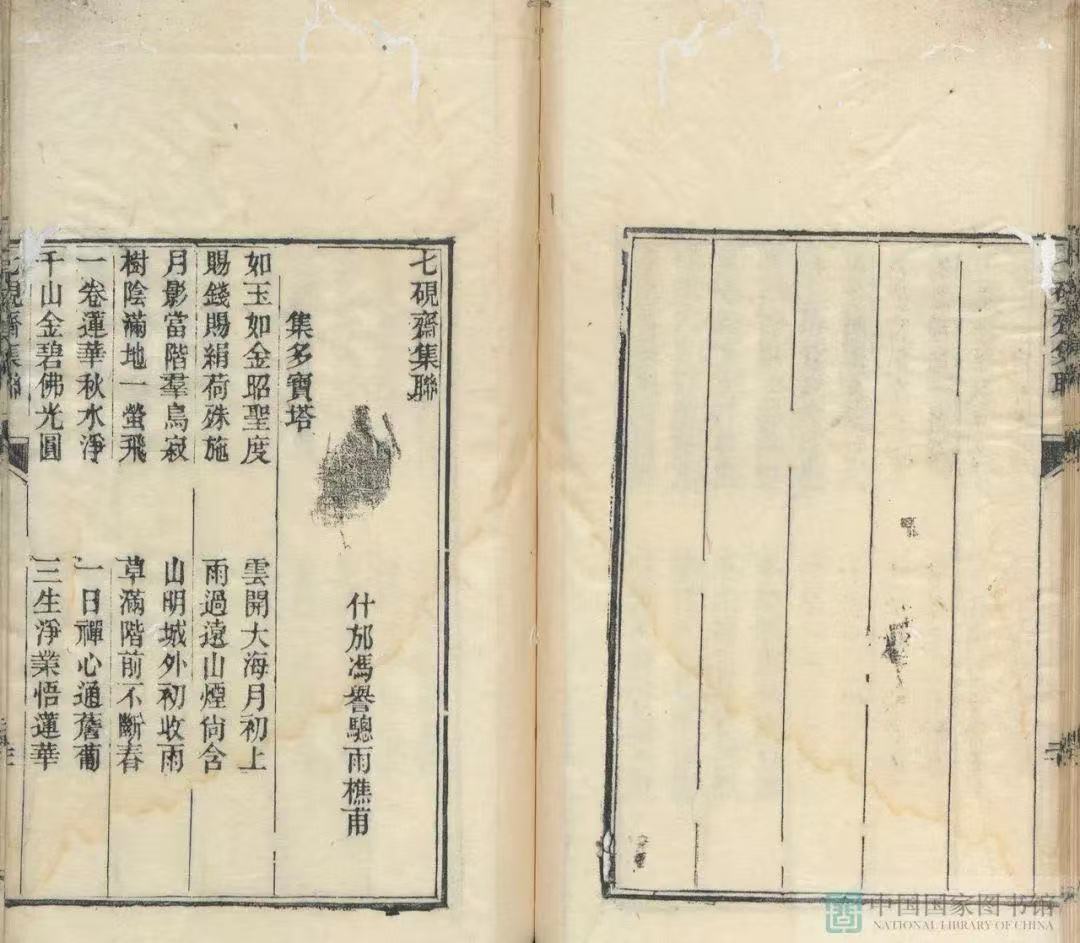 七硯齋集聯
什邡馮譽驄雨樵甫
集多寶塔
如玉如金昭聖度　雲開大海月初上
賜錢賜絹荷殊施　雨過遠山煙尚含
月影當階羣鳥寂　山明城外初收雨
樹陰滿地一螢飛　草滿階前不斷春
一卷蓮華秋水淨　一日禪心通薝蔔
千山金碧佛光圓　三生淨業悟蓮華
七硯齋集聯
中国国家图书馆
NATIONAL LIBRARY OF CHINA